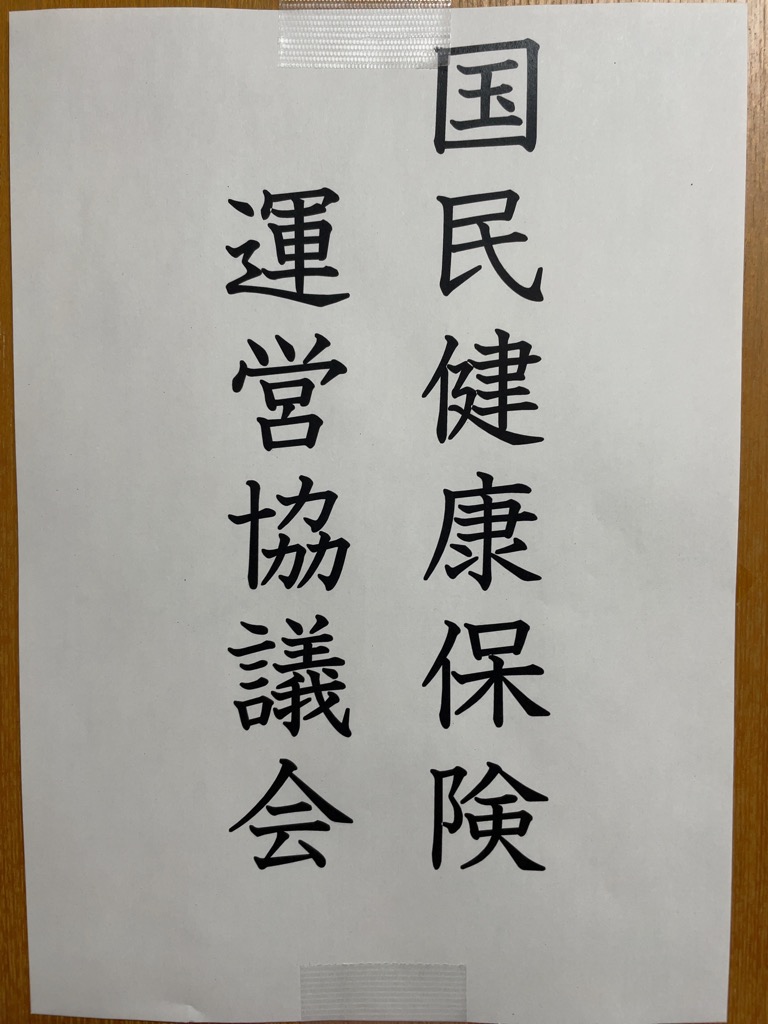 国民健康保険
運営協議会